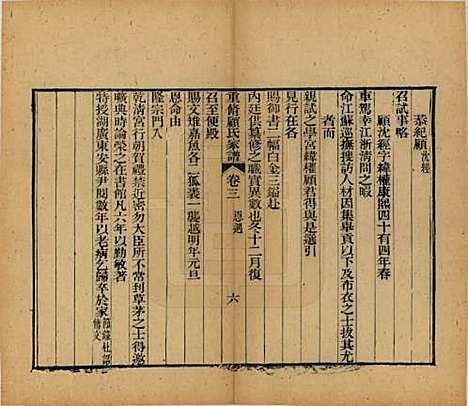 恭紀顧沈經
召試事略
顧沈經字緯權康熙四十有四年春
車駕幸江浙清問之暇
命江蘇巡撫搜訪人材因集舉貢以下及布衣之士拔其尤
者而
親試之學宮緯權顧君得與是選引
見行在各
賜御書二幅白金三鋌赴
內廷供纂修之職實異數也冬十二月復
重脩顧氏家譜 卷三 恩遇 六
召至便殿
賜文雉嘉魚各一狐裘一襲越明年元旦
恩命由
隆宗門入
乾清宮行朝賀禮禁近密勿大臣所不到草茅之士得邀
曠典時論榮之在書館凡六年以勤敏著
特授湖廣東安縣尹閱數年以老病乞歸卒於家